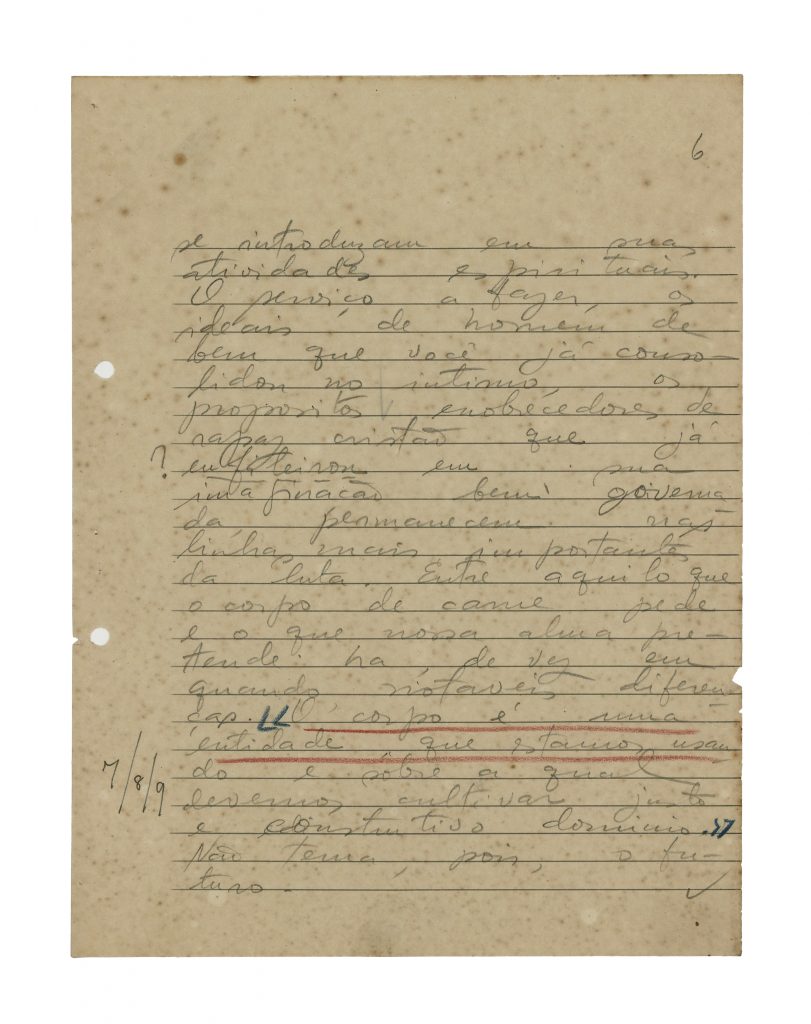 6
se introduzam em suas
atividades espirituais.
O serviço a fazer, os
ideais de homem de
bem que você já conso-
lidou no intimo, os
propositos enobrecedores de
rapaz cristão que já
? enfileirou em sua
imaginação bem governa
da, permanecem nas
linhas mais importantes
da luta. Entre aquilo que
o corpo de carne pede
e o que nossa alma pre-
tende ha, de vez em
quando notaveis diferen
ças. "O corpo é uma
entidade que estamos usan
7/8/9 do e sôbre a qual
devemos cultivar justo
e construtivo dominio."
Não tema, pois, o fu-
turo.